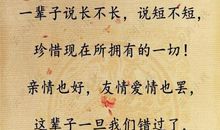 一辈子说长不长，说短不短，
珍惜现在所拥有的一切！
亲情也好，友情爱情也罢，
这辈子一旦我们错过了，